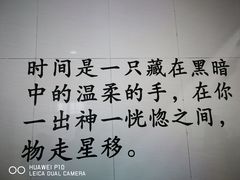 时间是一只藏在黑暗
中的温柔的手，在你
一出神一恍惚之间，
物走星移。
HUAWEI P10
LEICA DUAL CAMERA